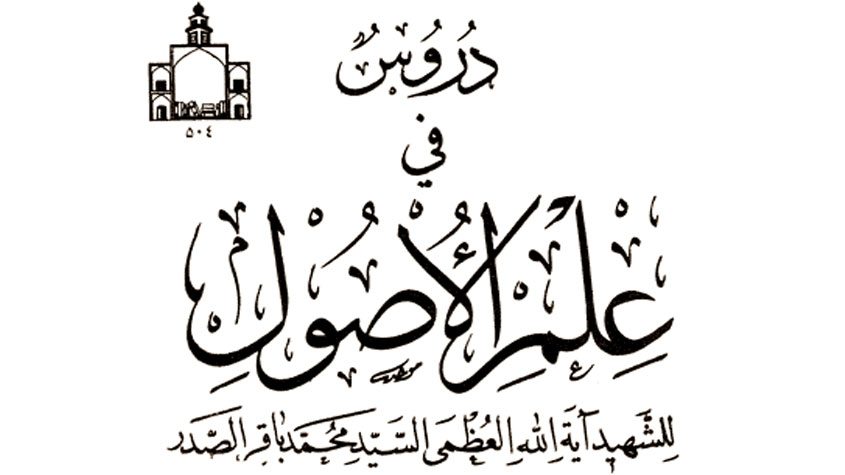 دُرُوسٌ
في
عِلْمِ الأُصُولِ
لِلشَّهيدِ آيَةِ اللهِ العُظْمى السَّيِّد مُحَمَّد بَاقِر الصَّدر
٥٠٤